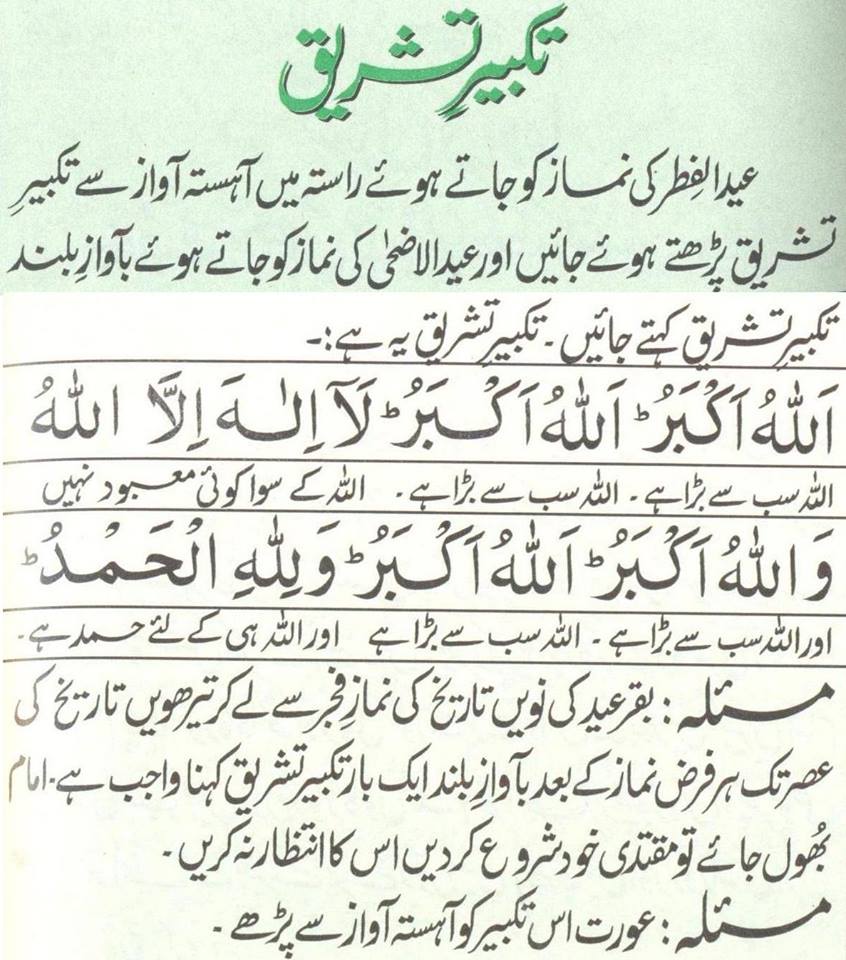 تکبیرِ تشریق
عید الفِطر کی نماز کو جاتے ہوئے راستہ میں آہستہ آواز سے تکبیرِ
تشریق پڑھتے ہوئے جائیں اور عید الاضحٰی کی نماز کو جاتے ہوئے بآوازِ بلند
تکبیرِ تشریق کہتے جائیں ۔ تکبیرِ تشریق یہ ہے :۔
اَللّٰهُ اَكْبَرُ ؕ اَللّٰهُ اَكْبَرُ ؕ لَآ اِلٰهَ اِلَّا اللّٰهُ
اللہ سب سے بڑا ہے ۔ اللہ سب سے بڑا ہے ۔ اللہ کے سوا کوئی معبود نہیں
وَاللّٰهُ اَكْبَرُ ؕ اَللّٰهُ اَكْبَرُ ؕ وَلِلّٰهِ الْحَمْدُ ؕ
اور اللہ سب سے بڑا ہے ۔ اللہ سب سے بڑا ہے اور اللہ ہی کے لئے حمد ہے ۔
مسئلہ : بقر عید کی نویں تاریخ کی نمازِ فجر سے لے کر تیرھویں تاریخ کی
عصر تک ہر فرض نماز کے بعد بآوازِ بلند ایک بار تکبیر تشریق کہنا واجب ہے ۔ امام
بھُول جائے تو مقتدی خود شروع کر دیں اس کا انتظار نہ کریں ۔
مسئلہ : عورت اس تکبیر کو آہستہ آواز سے پڑھے ۔